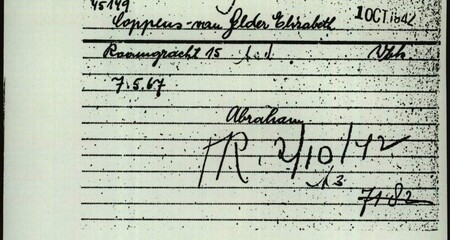 45149
Coppeus-van Gelder Elisabeth 1 OCT. 1942
Raamgracht 15
7.5.67
Abraham
TR. 2/10/42
71.82